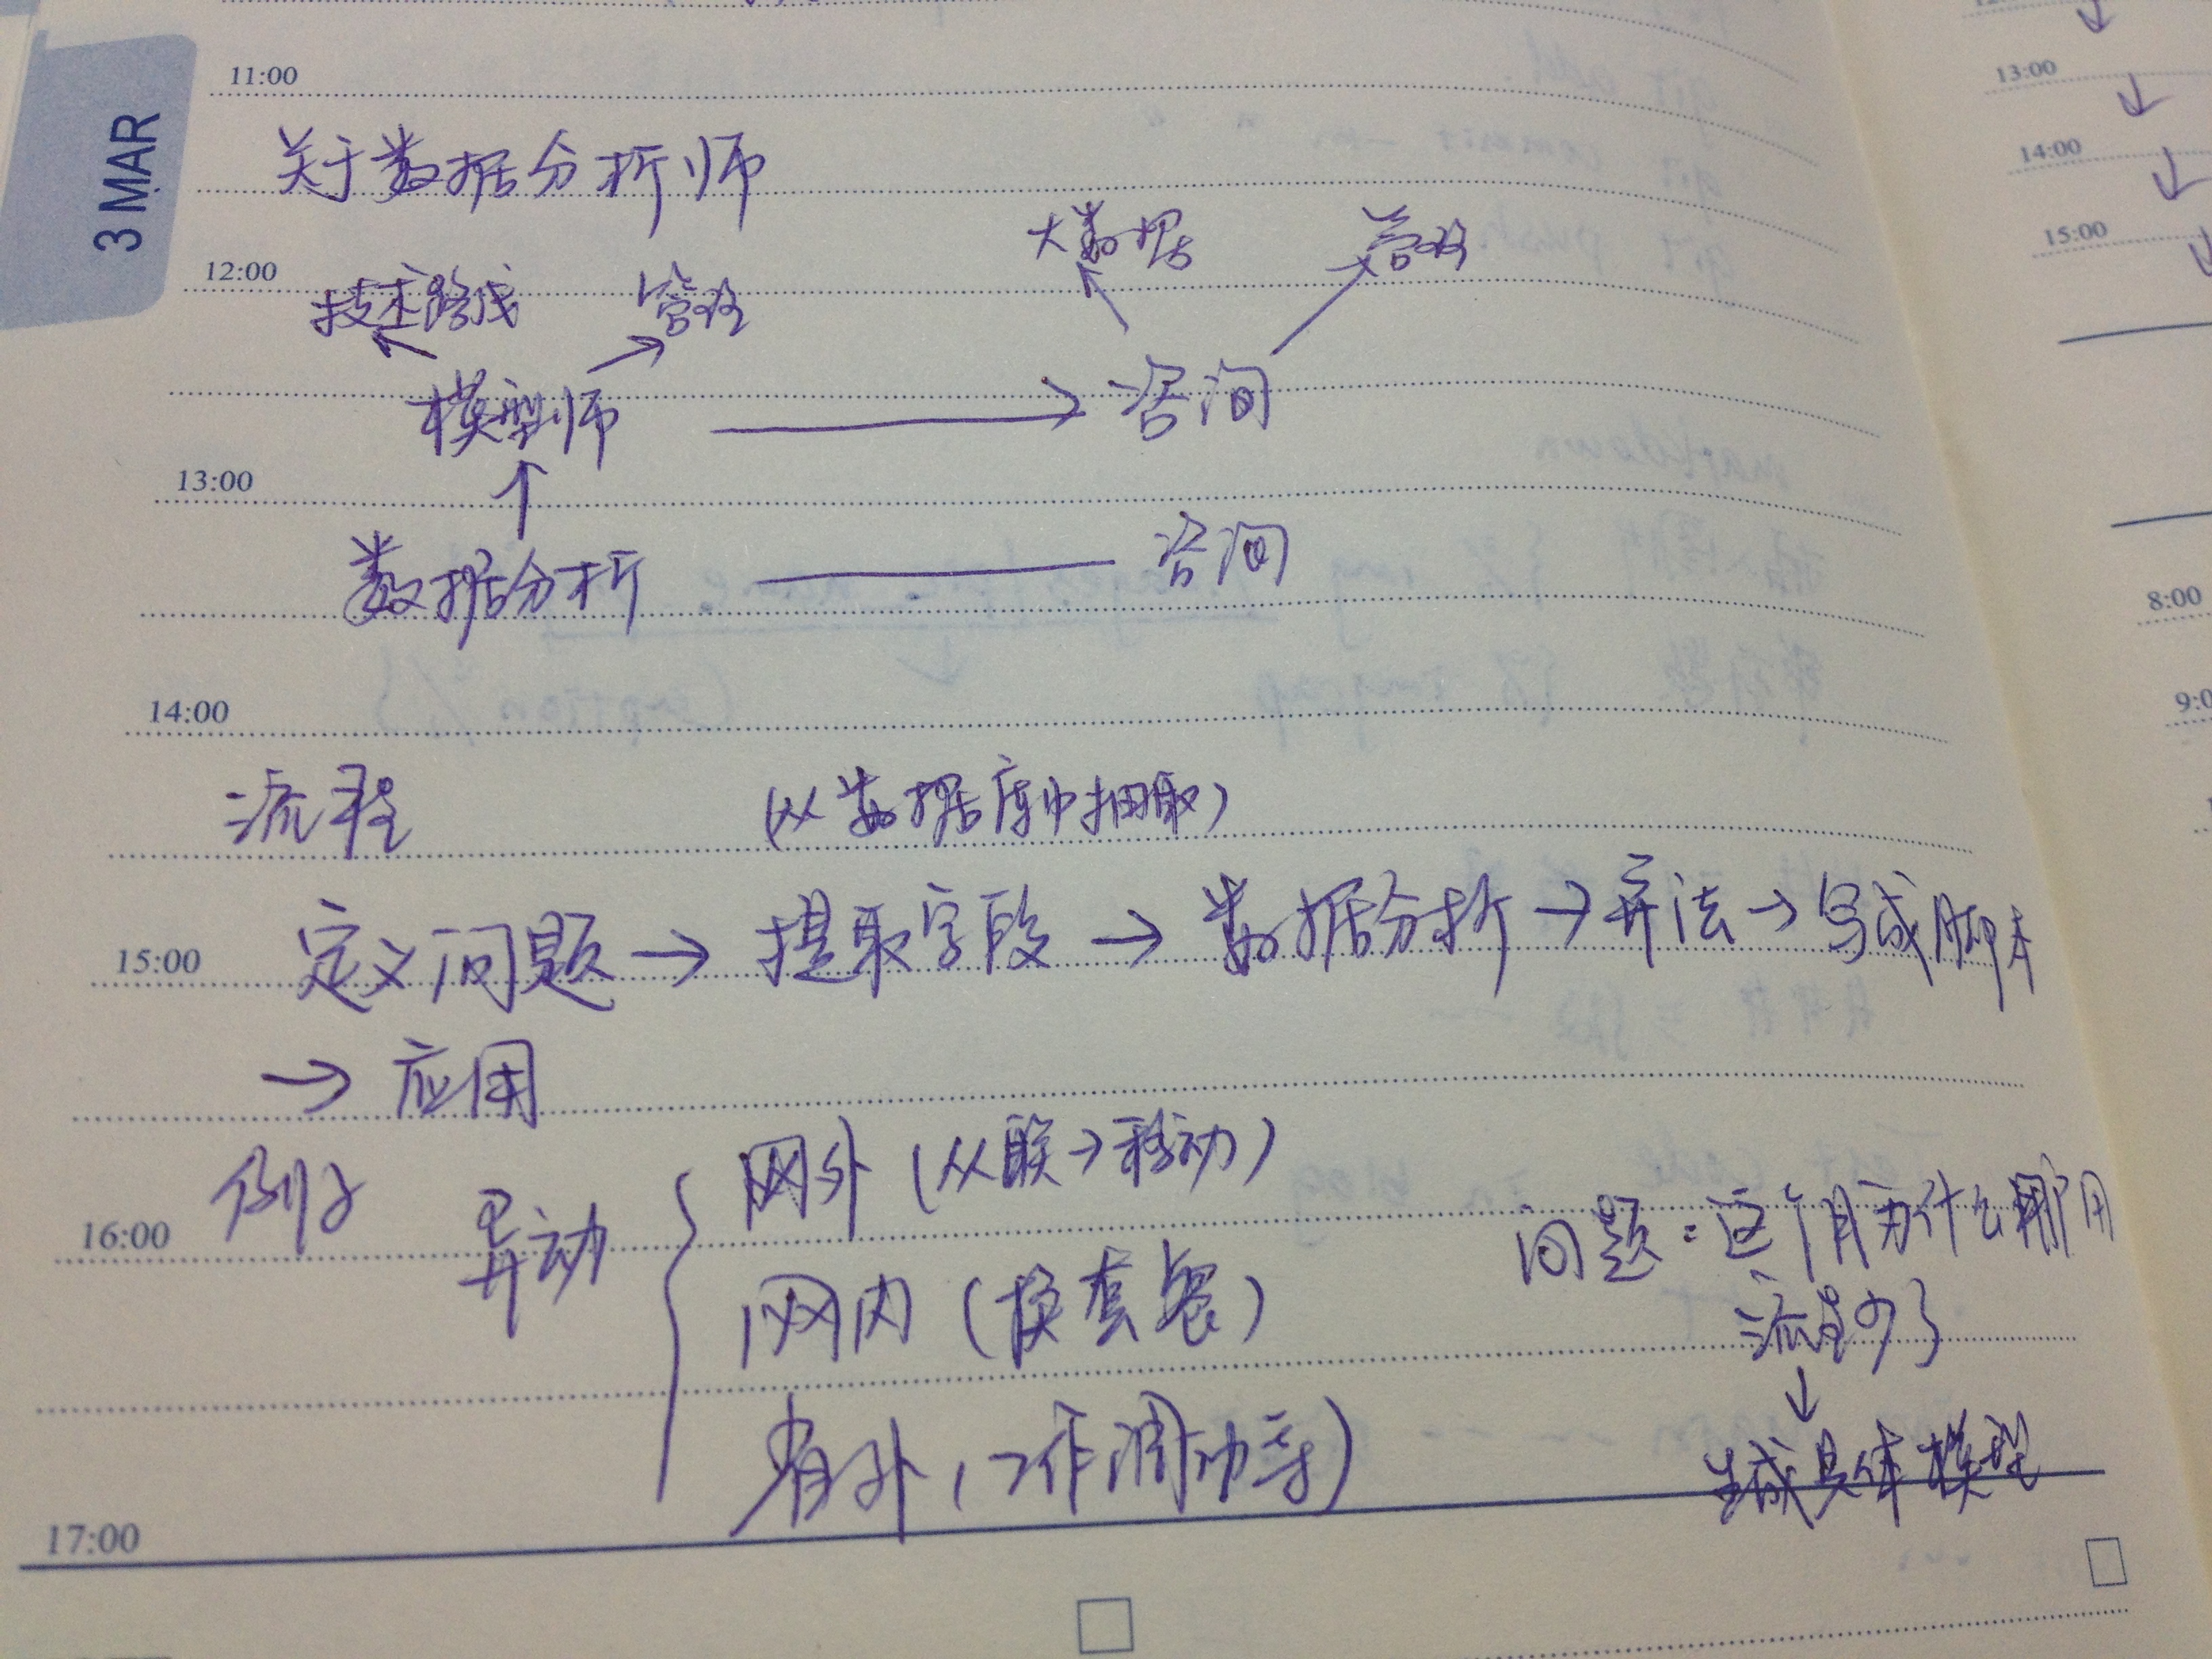 3 MAR
11:00
关于数据分析师
12:00
大数据 管理
技术路线 管理
模型师 → 咨询
↑
13:00
数据分析 — 咨询
14:00
流程 (从数据库中抽取)
15:00 定义问题 → 提取字段 → 数据分析 → 算法 → 写成脚本
→ 应用
16:00 例子 异动
网外 (从联→移动)
网内 (换套餐)
省外 (工作调动等)
问题：这个月为什么 用
流量少了
↓
生成具体模型
17:00
13:00
14:00
15:00
8:00